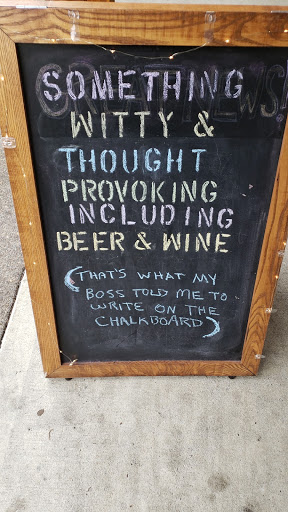 SOMETHING
WITTY &
THOUGHT
PROVOKING
INCLUDING
BEER & WINE
(THAT'S WHAT MY
BOSS TOLD ME TO
WRITE ON THE
CHALKBOARD)